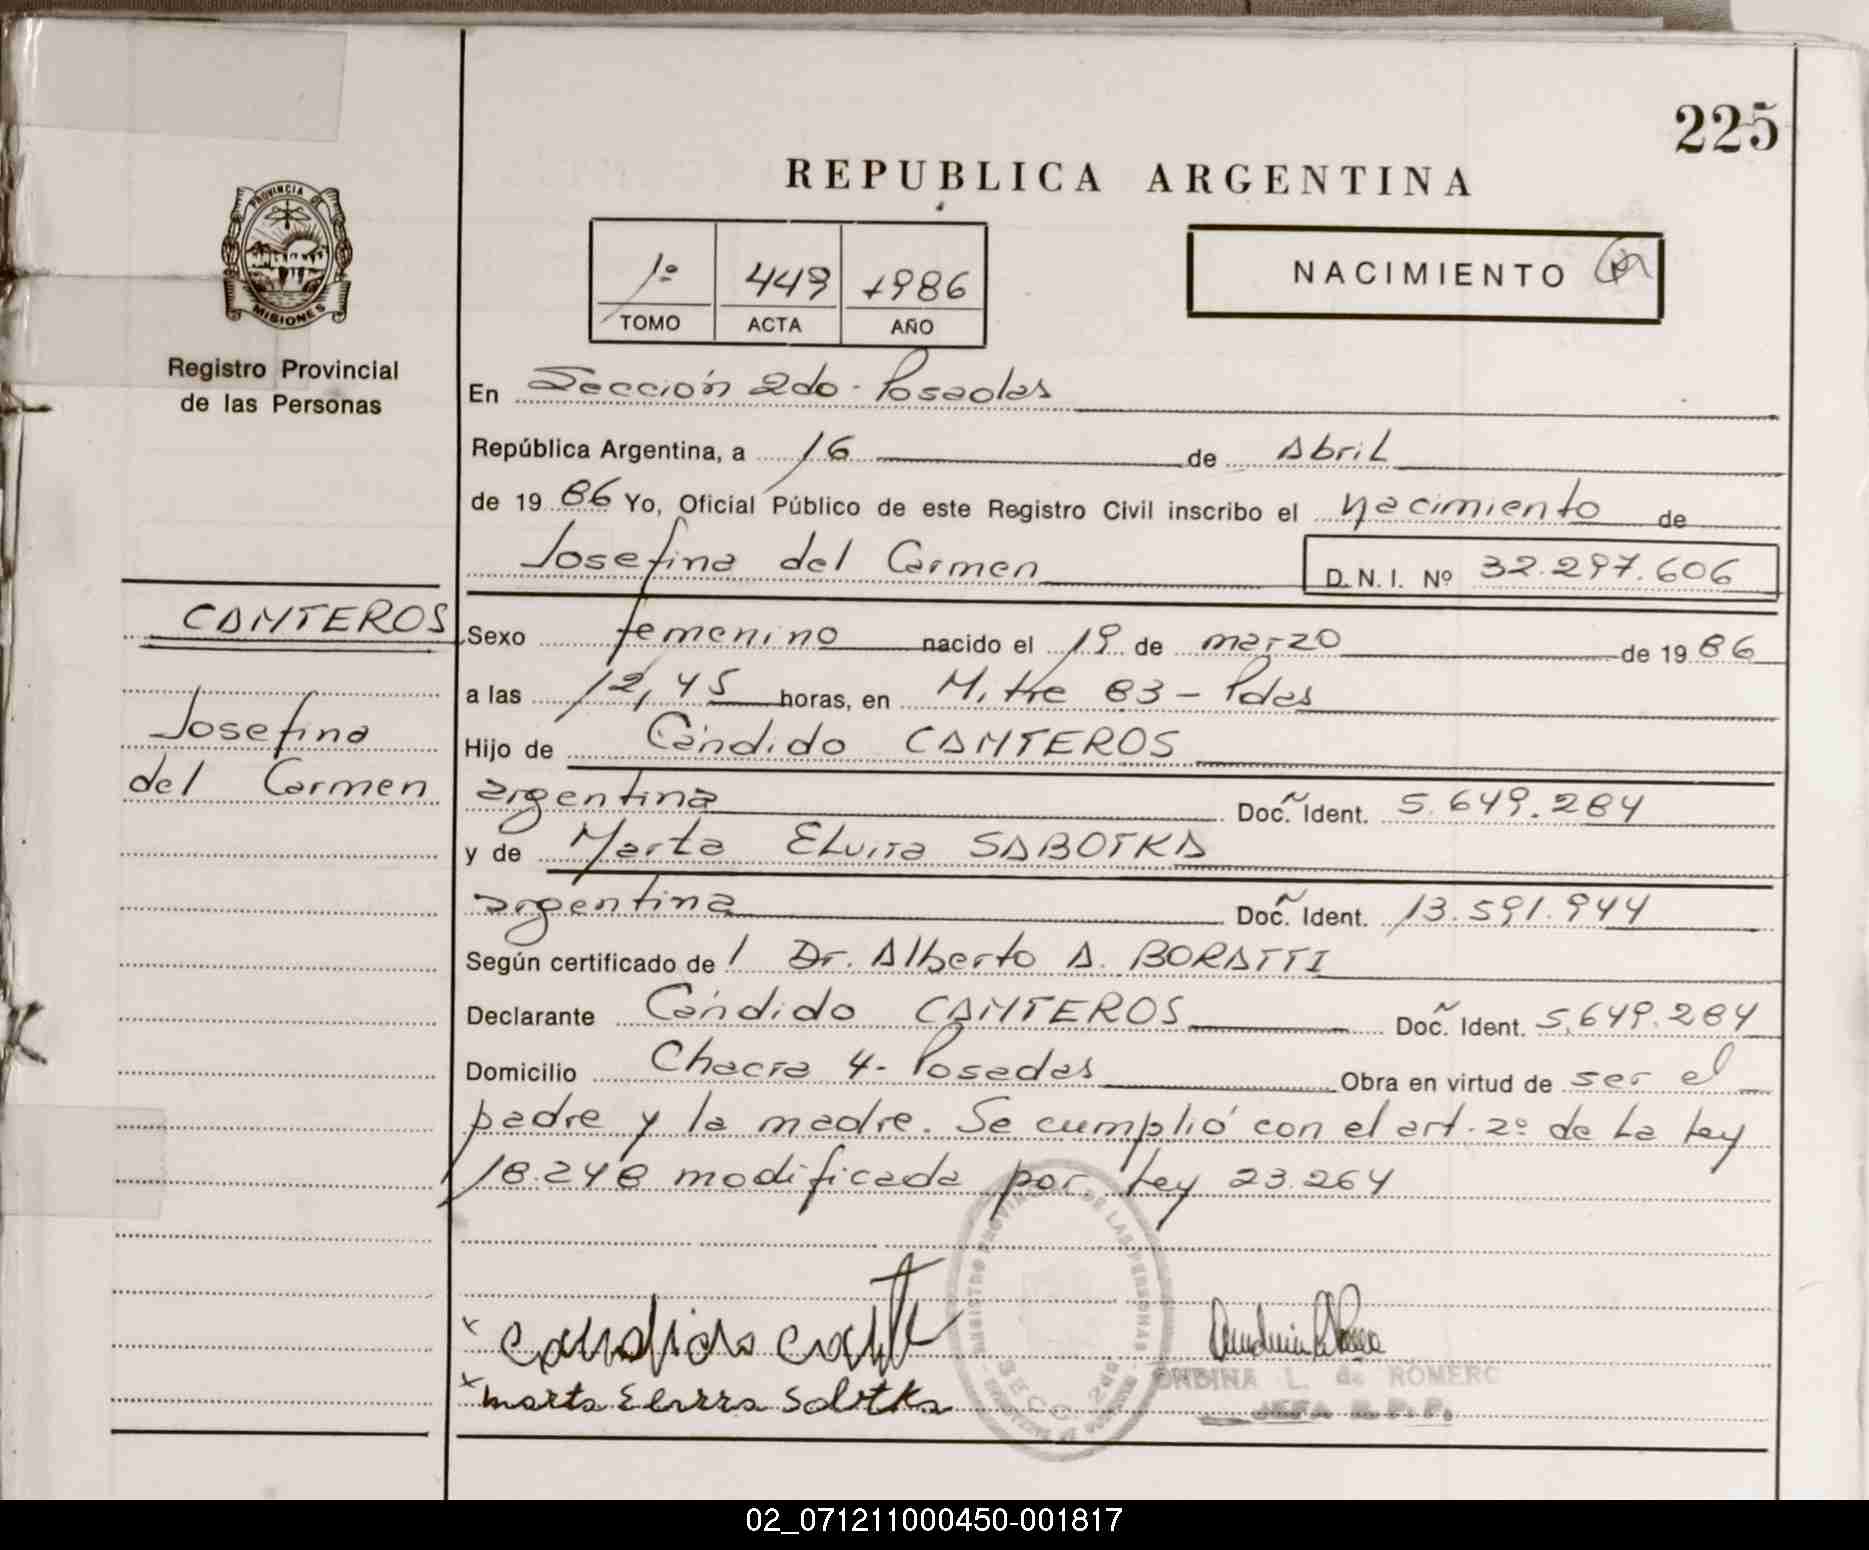 225
REPUBLICA ARGENTINA
PROVINCIA DE
MISIONES
1º 449 1986
TOMO ACTA AÑO
NACIMIENTO
Registro Provincial
de las Personas
En Sección 2do - Posadas
República Argentina, a 16 de Abril
de 19 86 Yo, Oficial Público de este Registro Civil inscribo el nacimiento de
Josefina del Carmen D.N.I. Nº 32.297.606
CANTEROS
Josefina
del Carmen
Sexo femenino nacido el 19 de marzo de 19 86
a las 12,45 horas, en Mitre 83 - Pdas
Hijo de Cándido CANTEROS
argentina Doc. Ident. 5.649.284
y de Marta Elvira SABOTKA
argentina Doc. Ident. 13.591.944
Según certificado de l Dr. Alberto A. BORATTI
Declarante Cándido CANTEROS Doc. Ident. 5.649.284
Domicilio Chacra 4 - Posadas Obra en virtud de ser el
padre y la madre. Se cumplió con el art. 2º de La Ley
18.248 modificada por Ley 23.264
REGISTRO PROVINCIAL DE LAS PERSONAS
SECC. 2da
x Candido Cante
x Marta Elvira Sabotka
ONDINA L. de ROMERO
JEFA R.P.P.
02_071211000450-001817